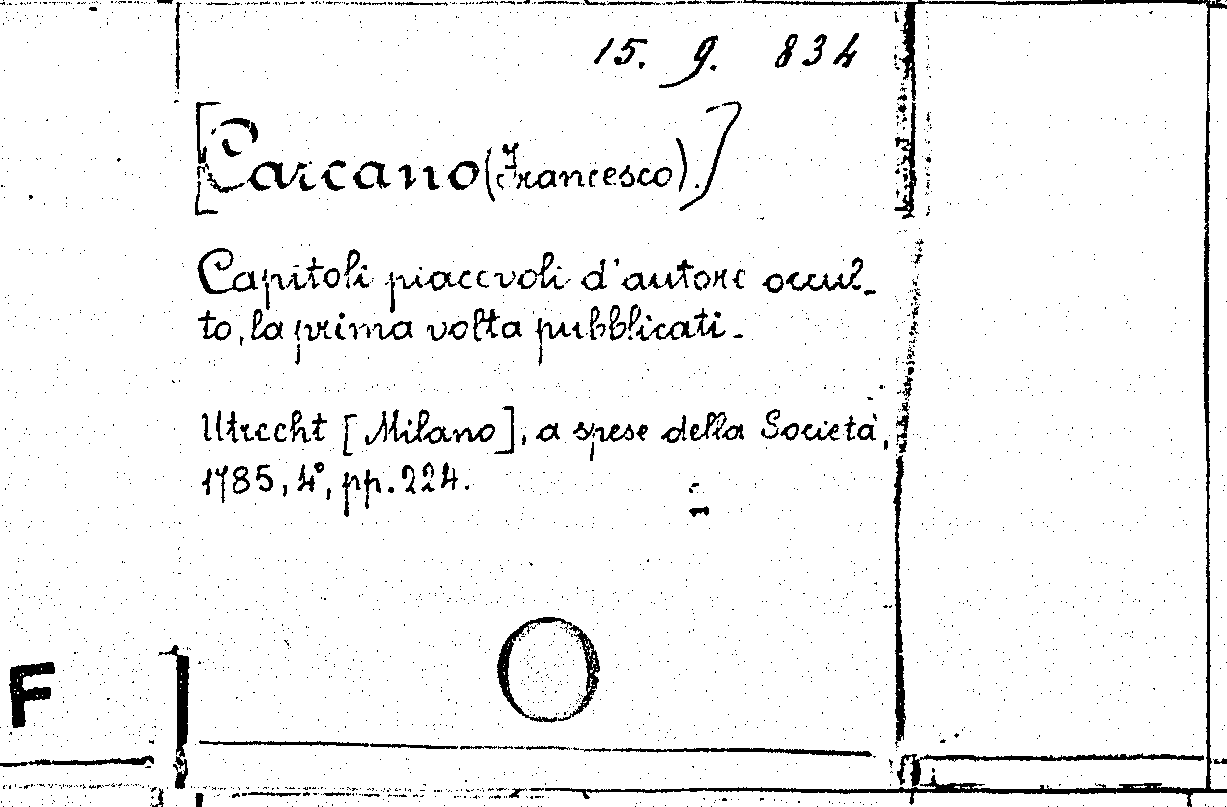 15. 9. 834
[Carcano (Francesco).]
Capitoli piacevoli d'autore occul-
to, la prima volta pubblicati.
Utrecht [Milano], a spese della Società,
1785, 4°, pp. 224.
F